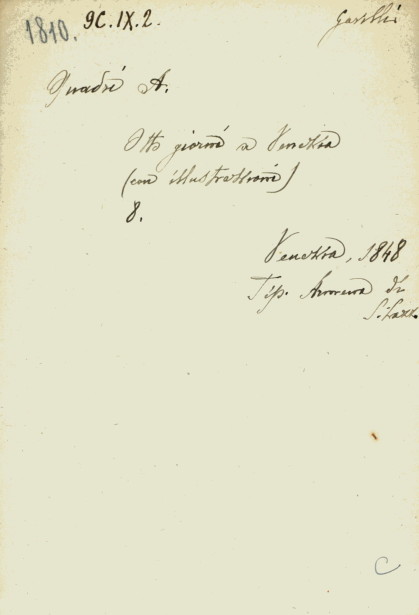 1810. 9C.IX.2.
Quadri A.
Otto giorni a Venezia
(con illustrazioni)
8.
Venezia, 1848
Tip. Armena di
S. Lazz.
C